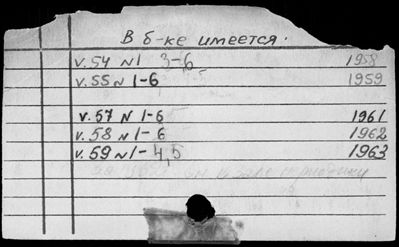 В б-ке имеется.
v. 54 N 1 3-6 1958
v. 55 N 1-6 1959
v. 57 N 1-6 1961
v. 58 N 1-6 1962
v. 59 N 1- 4,5 1963